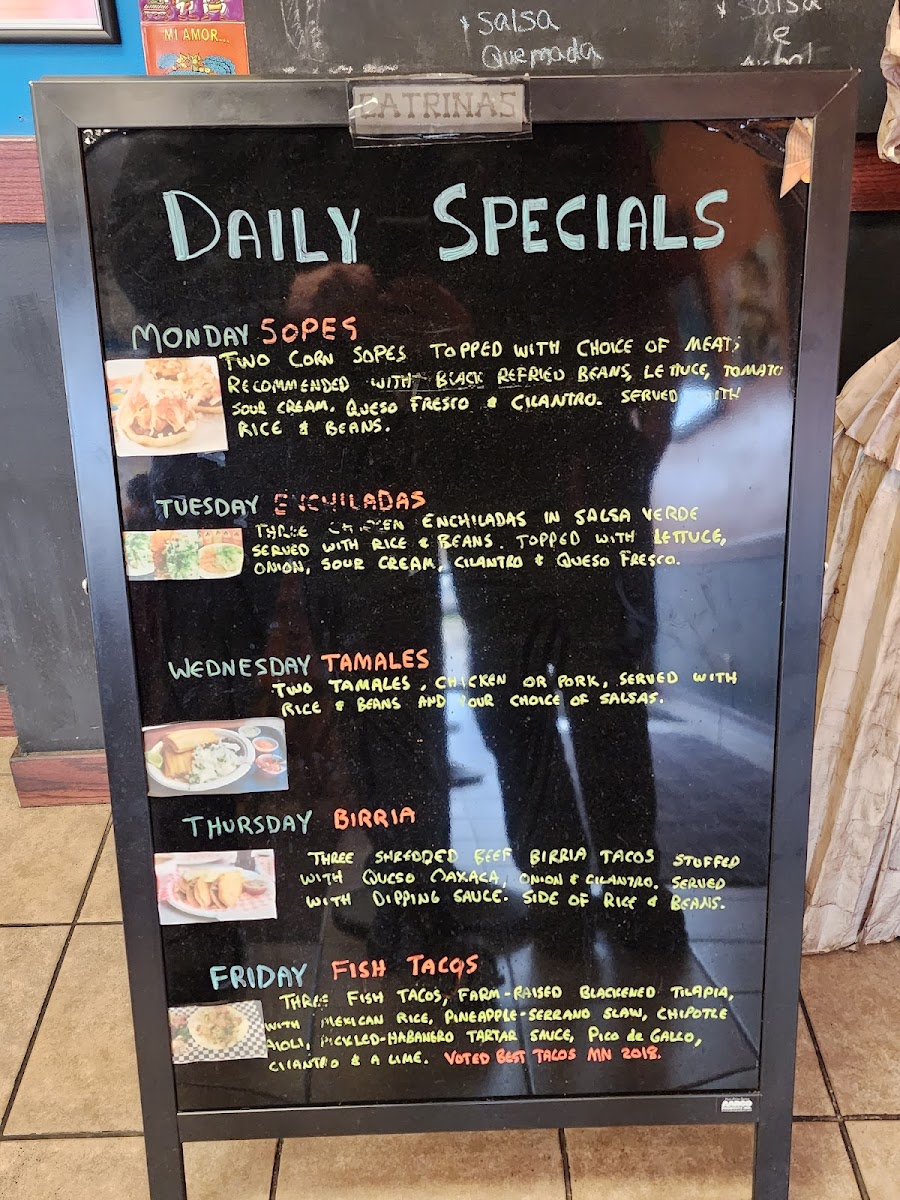 MI AMOR...
Salsa
Quemada
Salsa
CATRINAS
DAILY SPECIALS
MONDAY SOPES
TWO CORN SOPES TOPPED WITH CHOICE OF MEAT;
RECOMMENDED WITH BLACK REFRIED BEANS, LETTUCE, TOMATO
SOUR CREAM. QUESO FRESCO & CILANTRO. SERVED WITH
RICE & BEANS.
TUESDAY ENCHILADAS
THREE CHICKEN ENCHILADAS IN SALSA VERDE
SERVED WITH RICE & BEANS. TOPPED WITH LETTUCE,
ONION, SOUR CREAM, CILANTRO & QUESO FRESCO.
WEDNESDAY TAMALES
TWO TAMALES, CHICKEN OR PORK, SERVED WITH
RICE & BEANS AND YOUR CHOICE OF SALSAS.
THURSDAY BIRRIA
THREE SHREDDED BEEF BIRRIA TACOS STUFFED
WITH QUESO OAXACA, ONION & CILANTRO. SERVED
WITH DIPPING SAUCE. SIDE OF RICE & BEANS.
FRIDAY FISH TACOS
THREE FISH TACOS, FARM-RAISED BLACKENED TILAPIA,
WITH MEXICAN RICE, PINEAPPLE-SERRANO SLAW, CHIPOTLE
AIOLI, PICKLED-HABANERO TARTAR SAUCE, PICO de GALLO,
CILANTRO & A LIME. VOTED BEST TACOS MN 2018.
AARCO